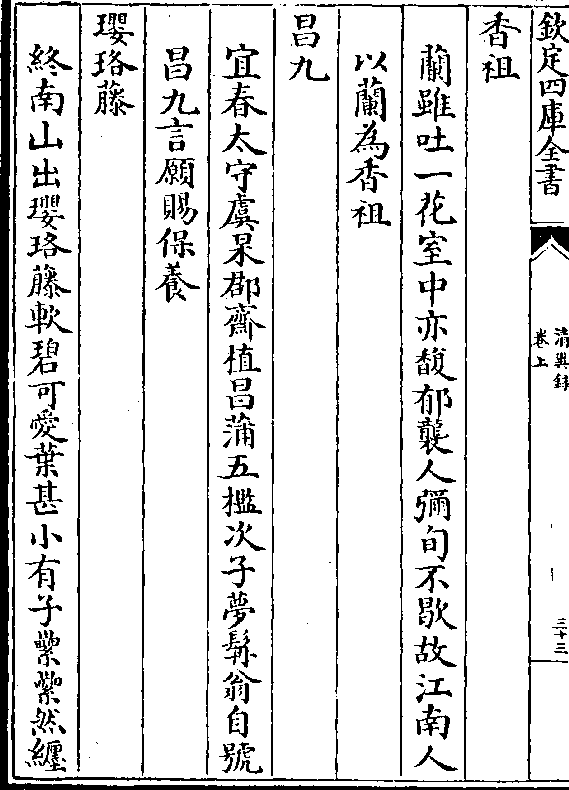 欽定四庫全書
清異録
卷上
三十三
香祖
蘭雖吐一花室中亦馥郁襲人彌旬不歇故江南人
以蘭為香祖
昌九
宜春太守虞杲郡齋植昌蒲五檻次子夢髯翁自號
昌九言願賜保養
瓔珞藤
終南山出瓔珞藤軟碧可愛葉甚小有子纍纍然纏